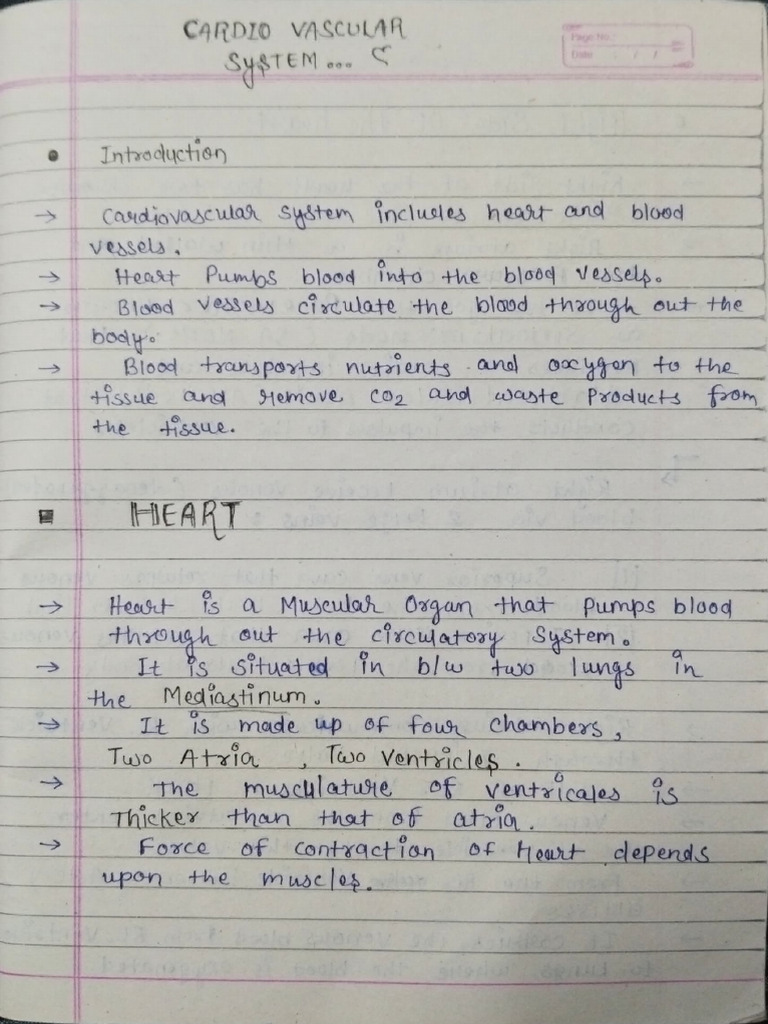 CARDIO VASCULAR
SySTEM...
Page No.:
Date: / /
• Introduction
→ Cardiovascular system includes heart and blood
vessels.
→ Heart Pumbs blood into the blood vessels.
→ Blood vessels circulate the blood through out the
body.
→ Blood transports nutrients and oxygen to the
tissue and remove CO2 and waste Products from
the tissue.
■ HEART
→ Heart is a Muscular Organ that Pumps blood
through out the circulatory System.
→ It is situated in b/w two lungs in
the Mediastinum.
→ It is made up of four chambers,
Two Atria , Two Ventricles.
→ The musculature of ventricales is
Thicker than that of atria.
→ Force of contraction of Heart depends
upon the muscles.